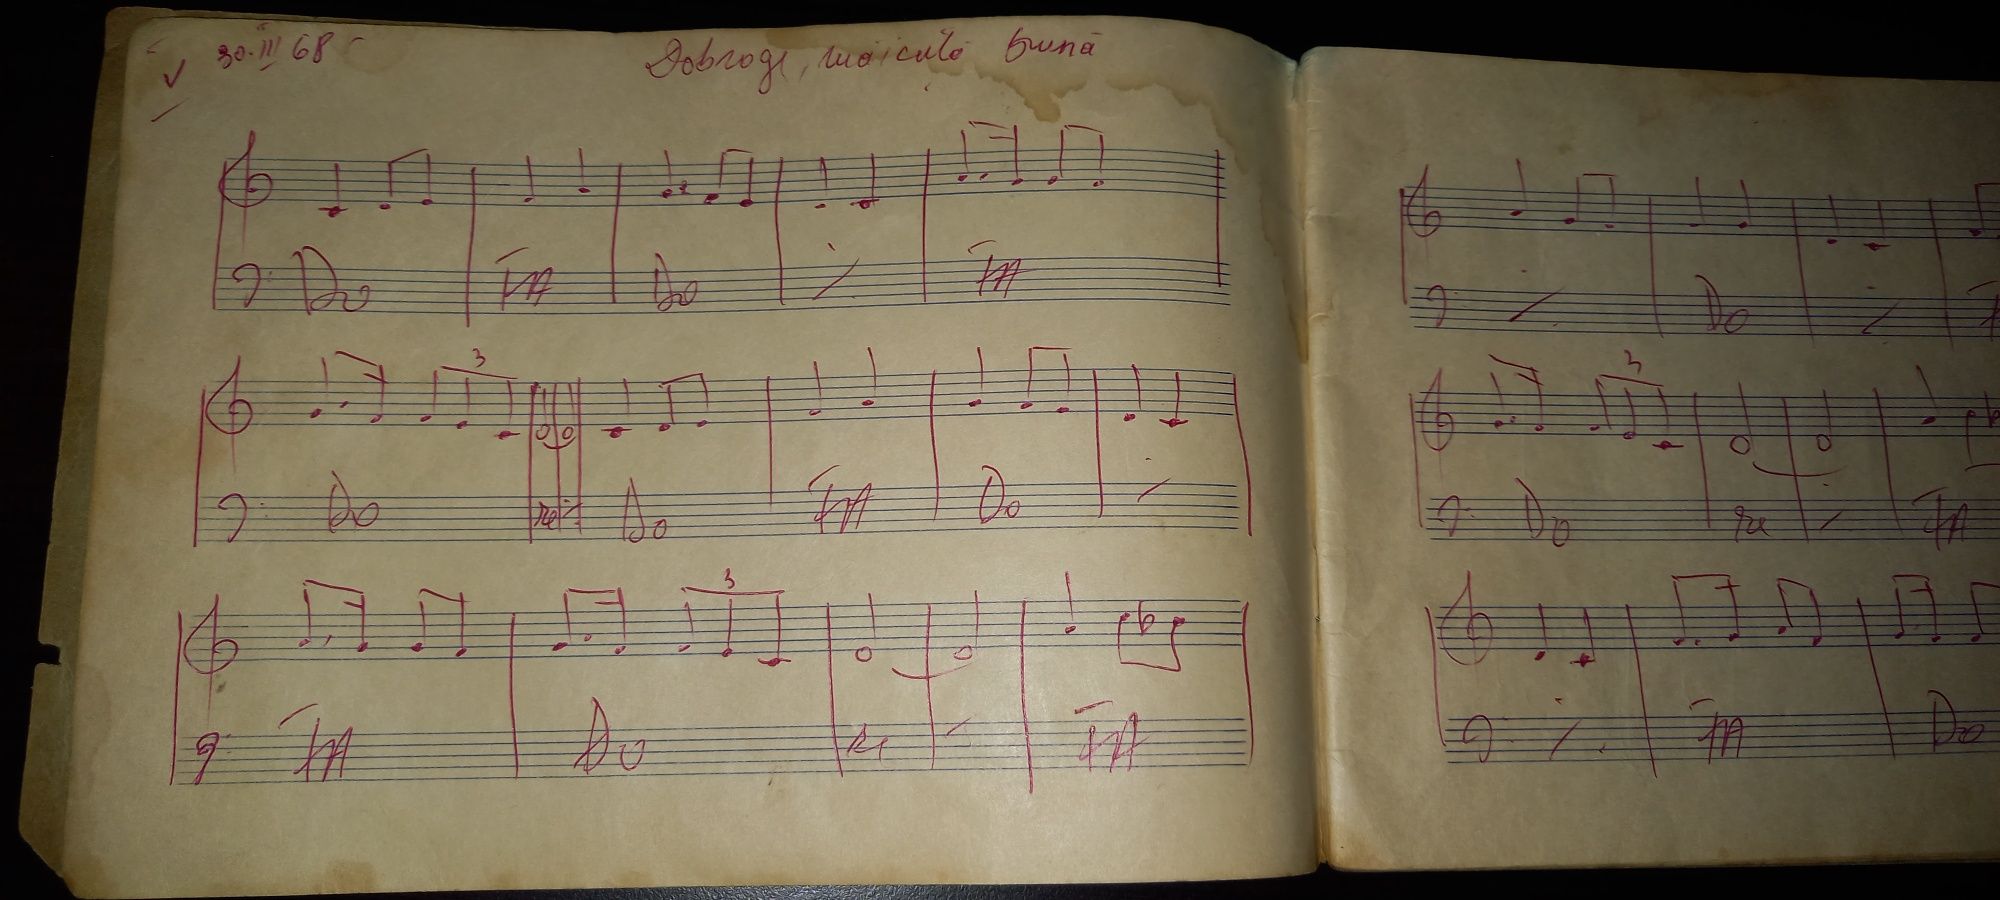 30.III 68
Dobroge, măiculă bună
Do FA Do FA
3
Do re Do FA Do
3
FA Do re FA
Do
3
Do re FA
FA Do